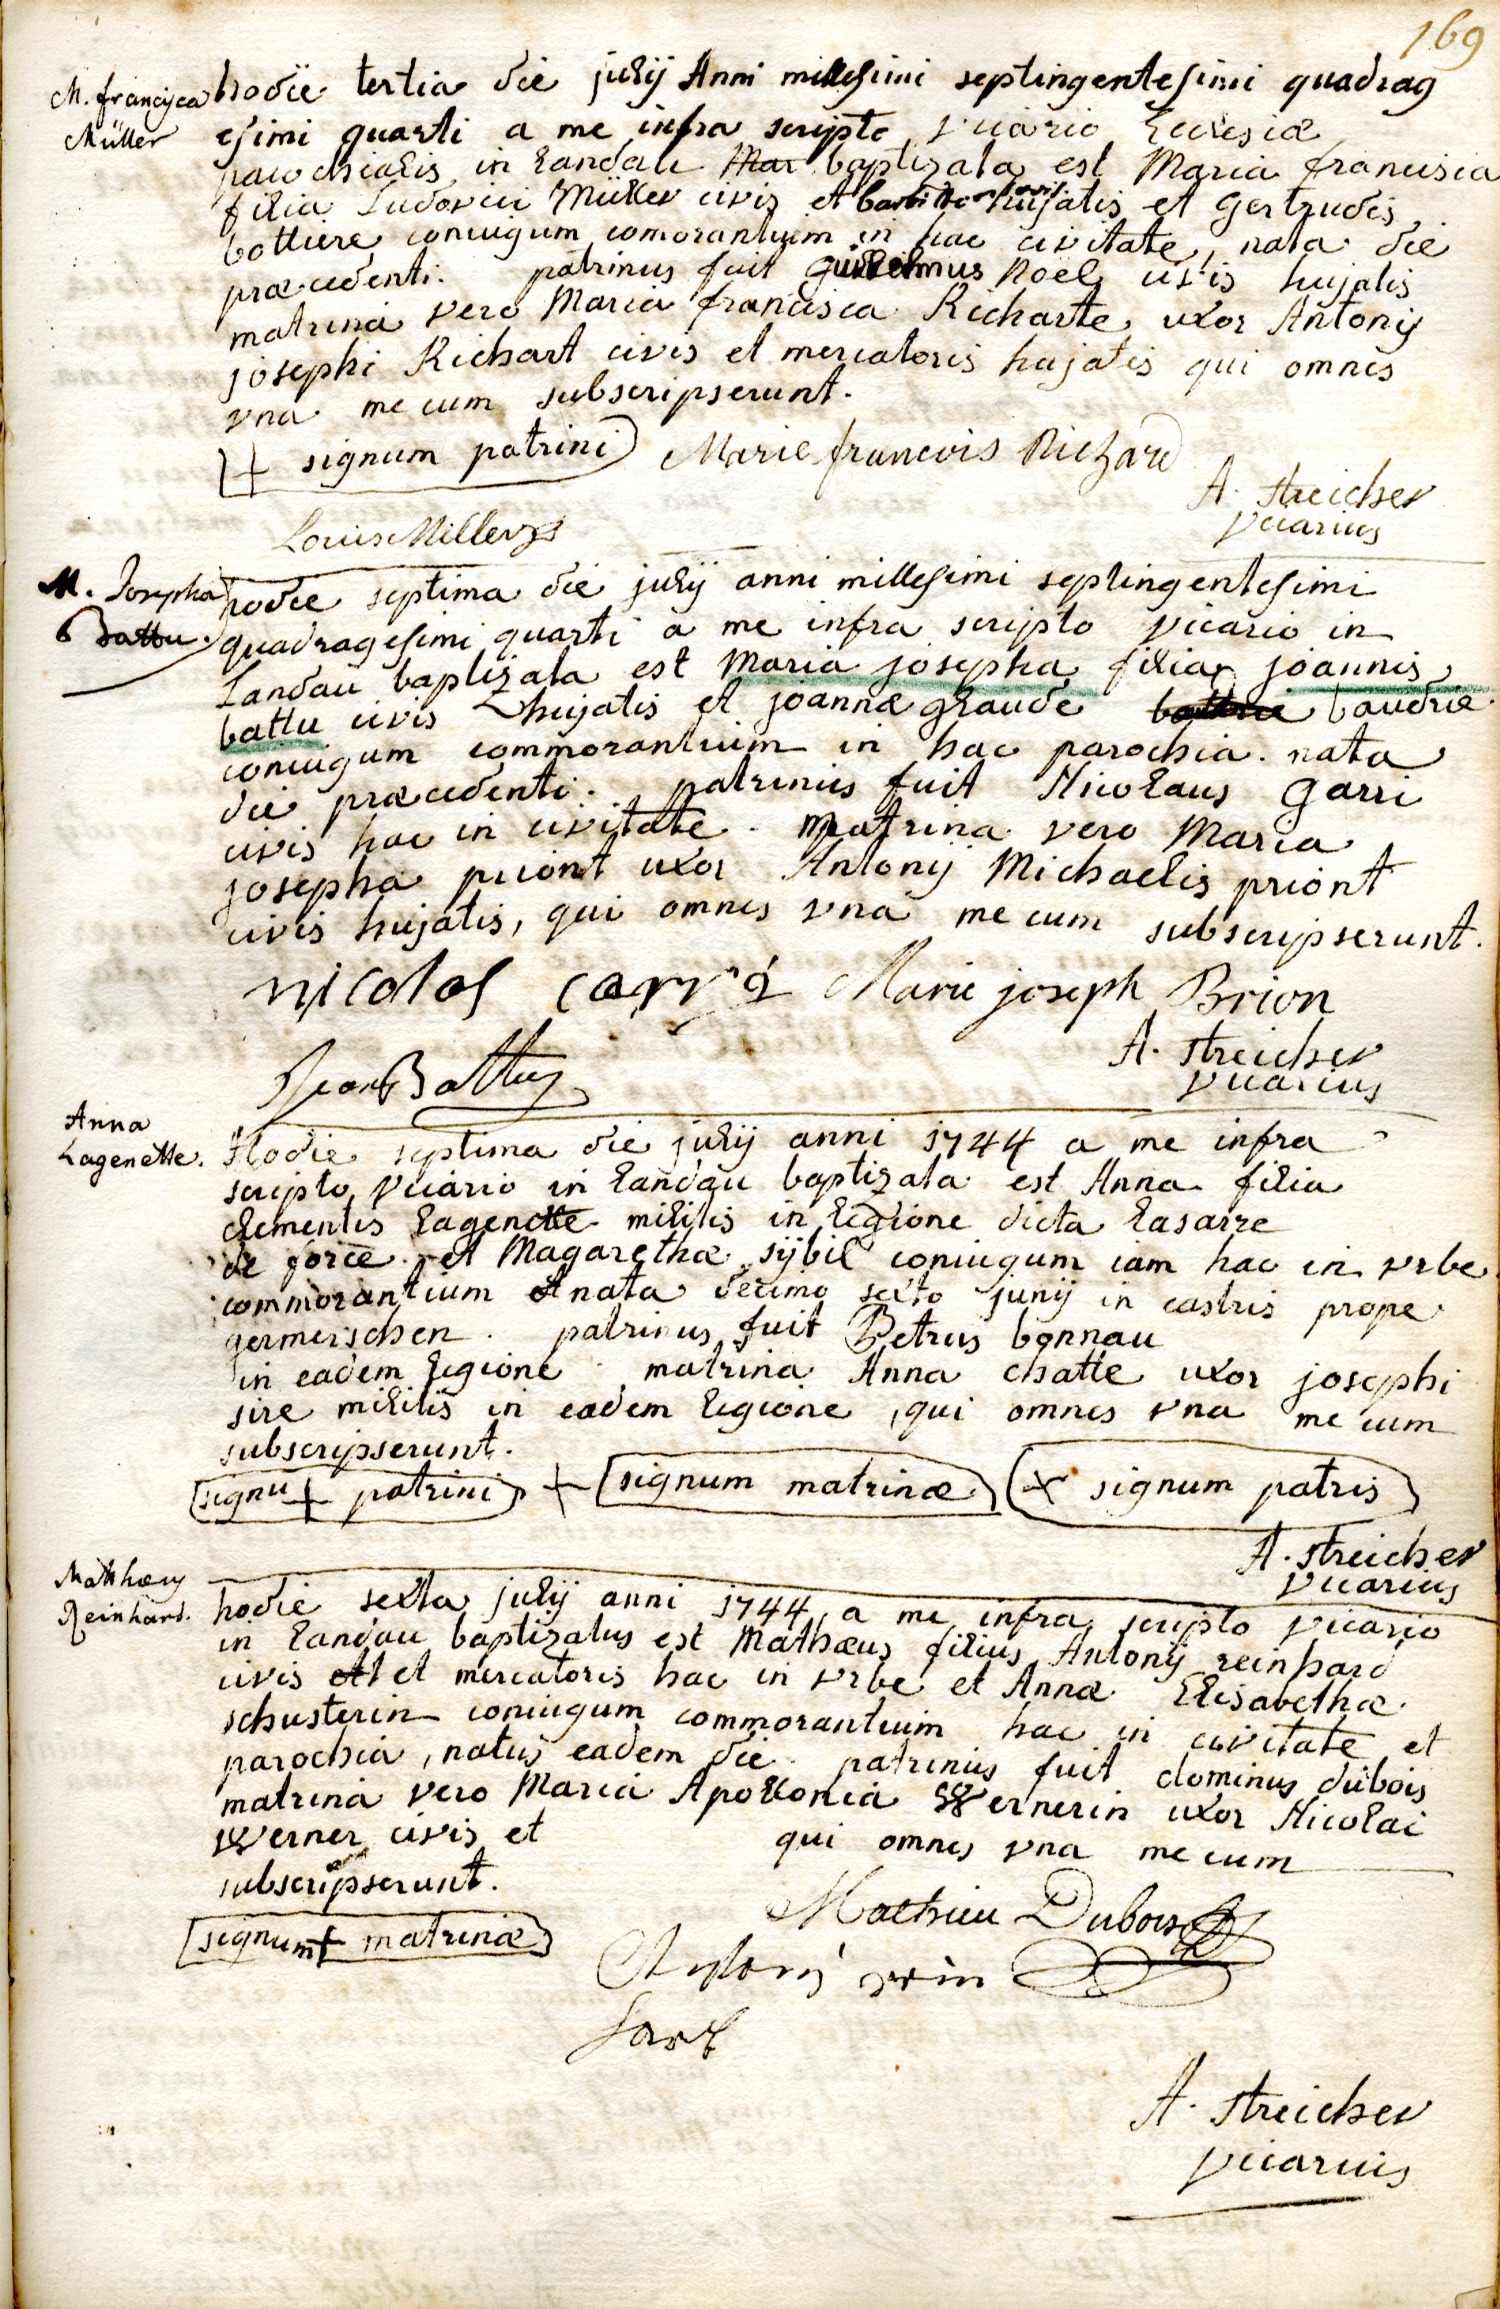 169
M. francisca
Müller
hodie tertia die julij Anni millesimi septingentesimi quadrag
esimi quarti a me infra scripto vicario Ecclesiæ
parochialis in landau Mar baptizata est Maria francisca
filia Ludovici Müller civis et hujatis et Gertrudis
bottiere coniugum comorantium in hac civitate, nata die
præcedenti. patrinus fuit Guilielmus Noël civis hujatis
matrina vero Maria francisca Richarte uxor Antonij
josephi Richart civis et mercatoris hujatis qui omnes
vna me cum subscripserunt.
+ signum patrini Marie francois Richard
A. Streicher
vicarius
Louis Miller
M. Josepha
Battu.
hodie septima die julij anni millesimi septingentesimi
quadragesimi quarti a me infra scripto vicario in
Landau baptizata est Maria josepha filia joannis
battu civis hujatis et joannæ glaude baudrie
coniugum commorantium in hac parochia. nata
die præcedenti. patrinus fuit Nicolaus Garri
civis hac in civitate. Matrina vero Maria
josepha priont uxor Antonij Michaelis priont
civis hujatis, qui omnes vna me cum subscripserunt.
nicolas carré Marie joseph Brion
A. Streicher
vicarius
Jean Battu
Anna
Lagenette.
Hodie septima die julij anni 1744 a me infra
scripto vicario in landau baptizata est Anna filia
clementis lagenette militis in legione dicta lasarre
de force et Magarethæ sijbil coniugum iam hac in vrbe
commorantium et nata decimo sexto junij in castris prope
germerschen. patrinus fuit Petrus bonnau
in eadem legione. matrina Anna chatte uxor josephi
sire militis in eadem legione, qui omnes vna me cum
subscripserunt.
signu + patrini + signum matrinæ + signum patris
A. Streicher
vicarius
Mathæus
Reinhard.
hodie sexta julij anni 1744 a me infra scripto vicario
in landau baptizatus est Mathæus filius Antonij reinhard
civis et et mercatoris hac in vrbe et Annæ Elisabethæ
schusterin coniugum commorantium hac in civitate et
parochia, natus eadem die. patrinus fuit dominus dubois
matrina vero Maria Apollonia Wernerin uxor Nicolai
Werner civis et qui omnes vna me cum
subscripserunt.
signum + matrinæ
Mathieu Dubois
Antonij rein
hart
A. Streicher
vicarius